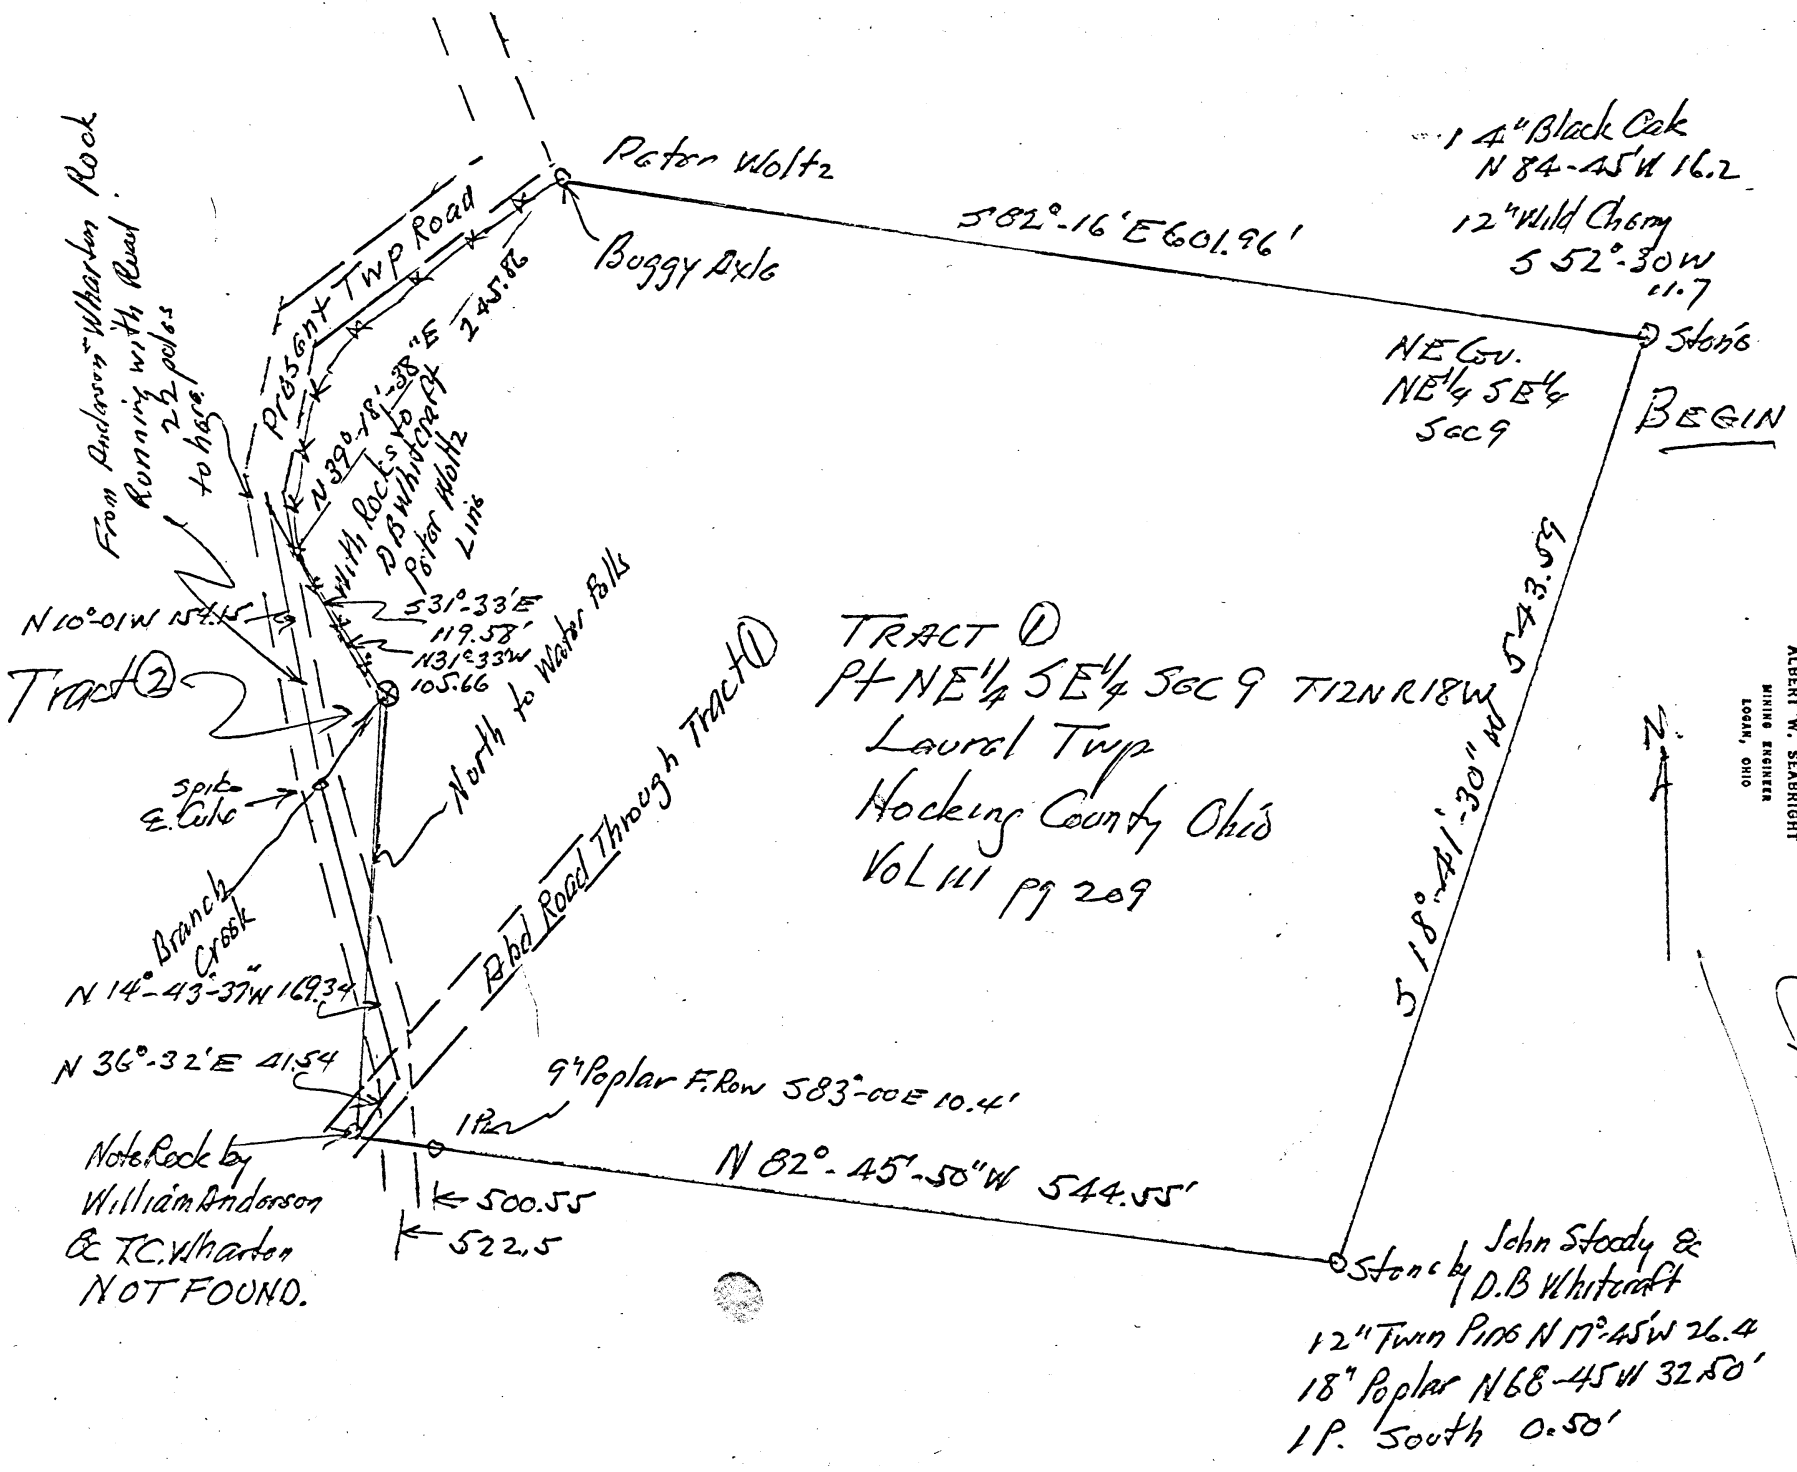 From Anderson "Wharton Rock
Running with Road
22 poles
to here.
Present Twp Road
Peter Woltz
Buggy Axle
S82°-16'E 601.96'
14" Black Oak
N 84-45'W 16.2
12" Wild Cherry
S 52°-30W
11.7
Stone
NE Cor.
NE 1/4 SE 1/4
Sec 9
BEGIN
N 39°-18'-38"E 245.86
With Rocks to
D B Whitcraft
Peter Woltz
Line
S31°-33'E
119.58'
N31°-33W
105.66
N 10°-01W 154.15
Tract ②
Spike
E. Culv
Branch
Creek
North to Water Falls
Abd Road Through Tract ①
TRACT ①
Pt NE 1/4 SE 1/4 Sec 9 T12N R18W
Laurel Twp
Hocking County Ohio
Vol 111 pg 209
S 18°-41'-30" W 543.59
N
ALBERT W. SEABRIGHT
MINING ENGINEER
LOGAN, OHIO
N 14°-43'-37"W 169.34
N 36°-32'E 41.54
9" Poplar F.Row S83°-00E 10.4'
1P.
N 82°-45'-50"W 544.55'
500.55
522.5
Note Rock by
William Anderson
& T.C. Wharton
NOT FOUND.
Stone by John Stoody &
D.B Whitcraft
12" Twin Pine N 17°-45'W 26.4
18" Poplar N68-45W 32.50'
1P. South 0.50'